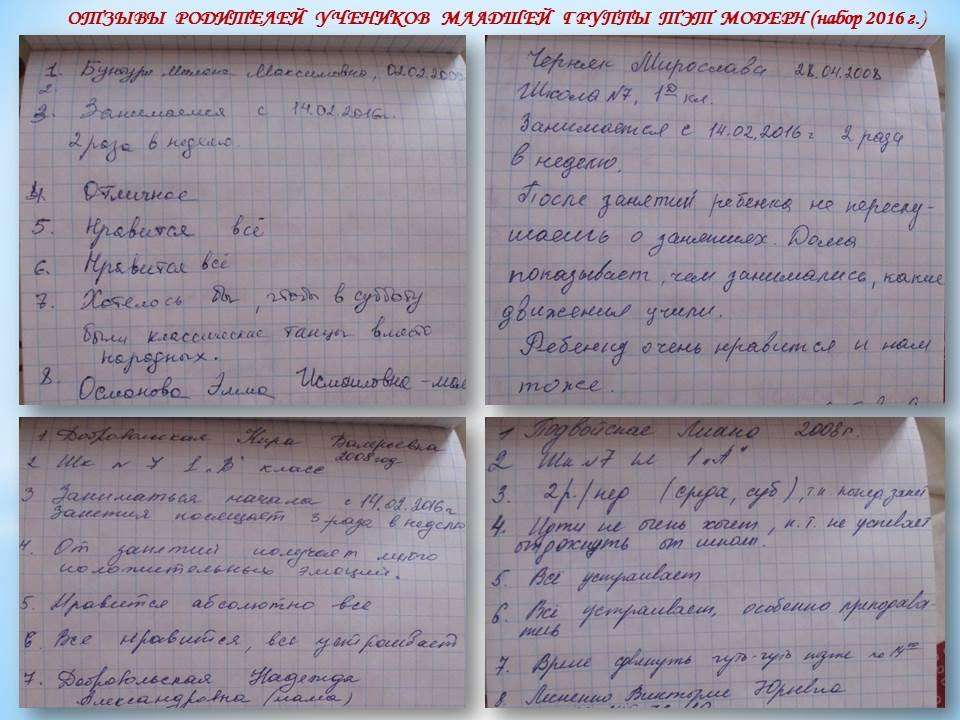 ОТЗЫВЫ РОДИТЕЛЕЙ УЧЕНИКОВ МЛАДШЕЙ ГРУППЫ ТЭТ МОДЕРН (набор 2016 г.)
1. Максимовна, 02.02.2008
2.
3. Занимаемся с 14.02.2016г.
2 раза в неделю.
4. Отличное
5. Нравится всё
6. Нравится всё
7. Хотелось бы, чтобы в субботу
были классические танцы вместо
народных.
8. Османова Эмма Исмаиловна - мама
Черняк Мирослава 28.04.2008
Школа №7, 1 кл.
Занимается с 14.02.2016г 2 раза
в неделю.
После занятий ребенка не переслу-
шаешь о занятиях. Дома
показывает, чем занимались, какие
движения учили.
Ребенку очень нравится и нам
тоже.
1 Добровольская Кира Валерьевна
2008 год
2 Шк № 7 1 "В" класс
3 Заниматься начала с 14.02.2016г
Занятия посещает 3 раза в неделю
4. От занятий получает много
положительных эмоций.
5. Нравится абсолютно все
6. Все нравится, все устраивает
7. Добровольская Надежда
Александровна (мама)
1 2008г.
2 Шк №7 кл 1 "А"
3. 2р./нед (среда, суб),
4. Идти не очень хочет, к. т. не успевает
отдохнуть от школы.
5. Всё устраивает
6. Всё устраивает, особенно преподава-
тель
7. Время сдвинуть чуть-чуть позже
8. Виктория Юрьевна